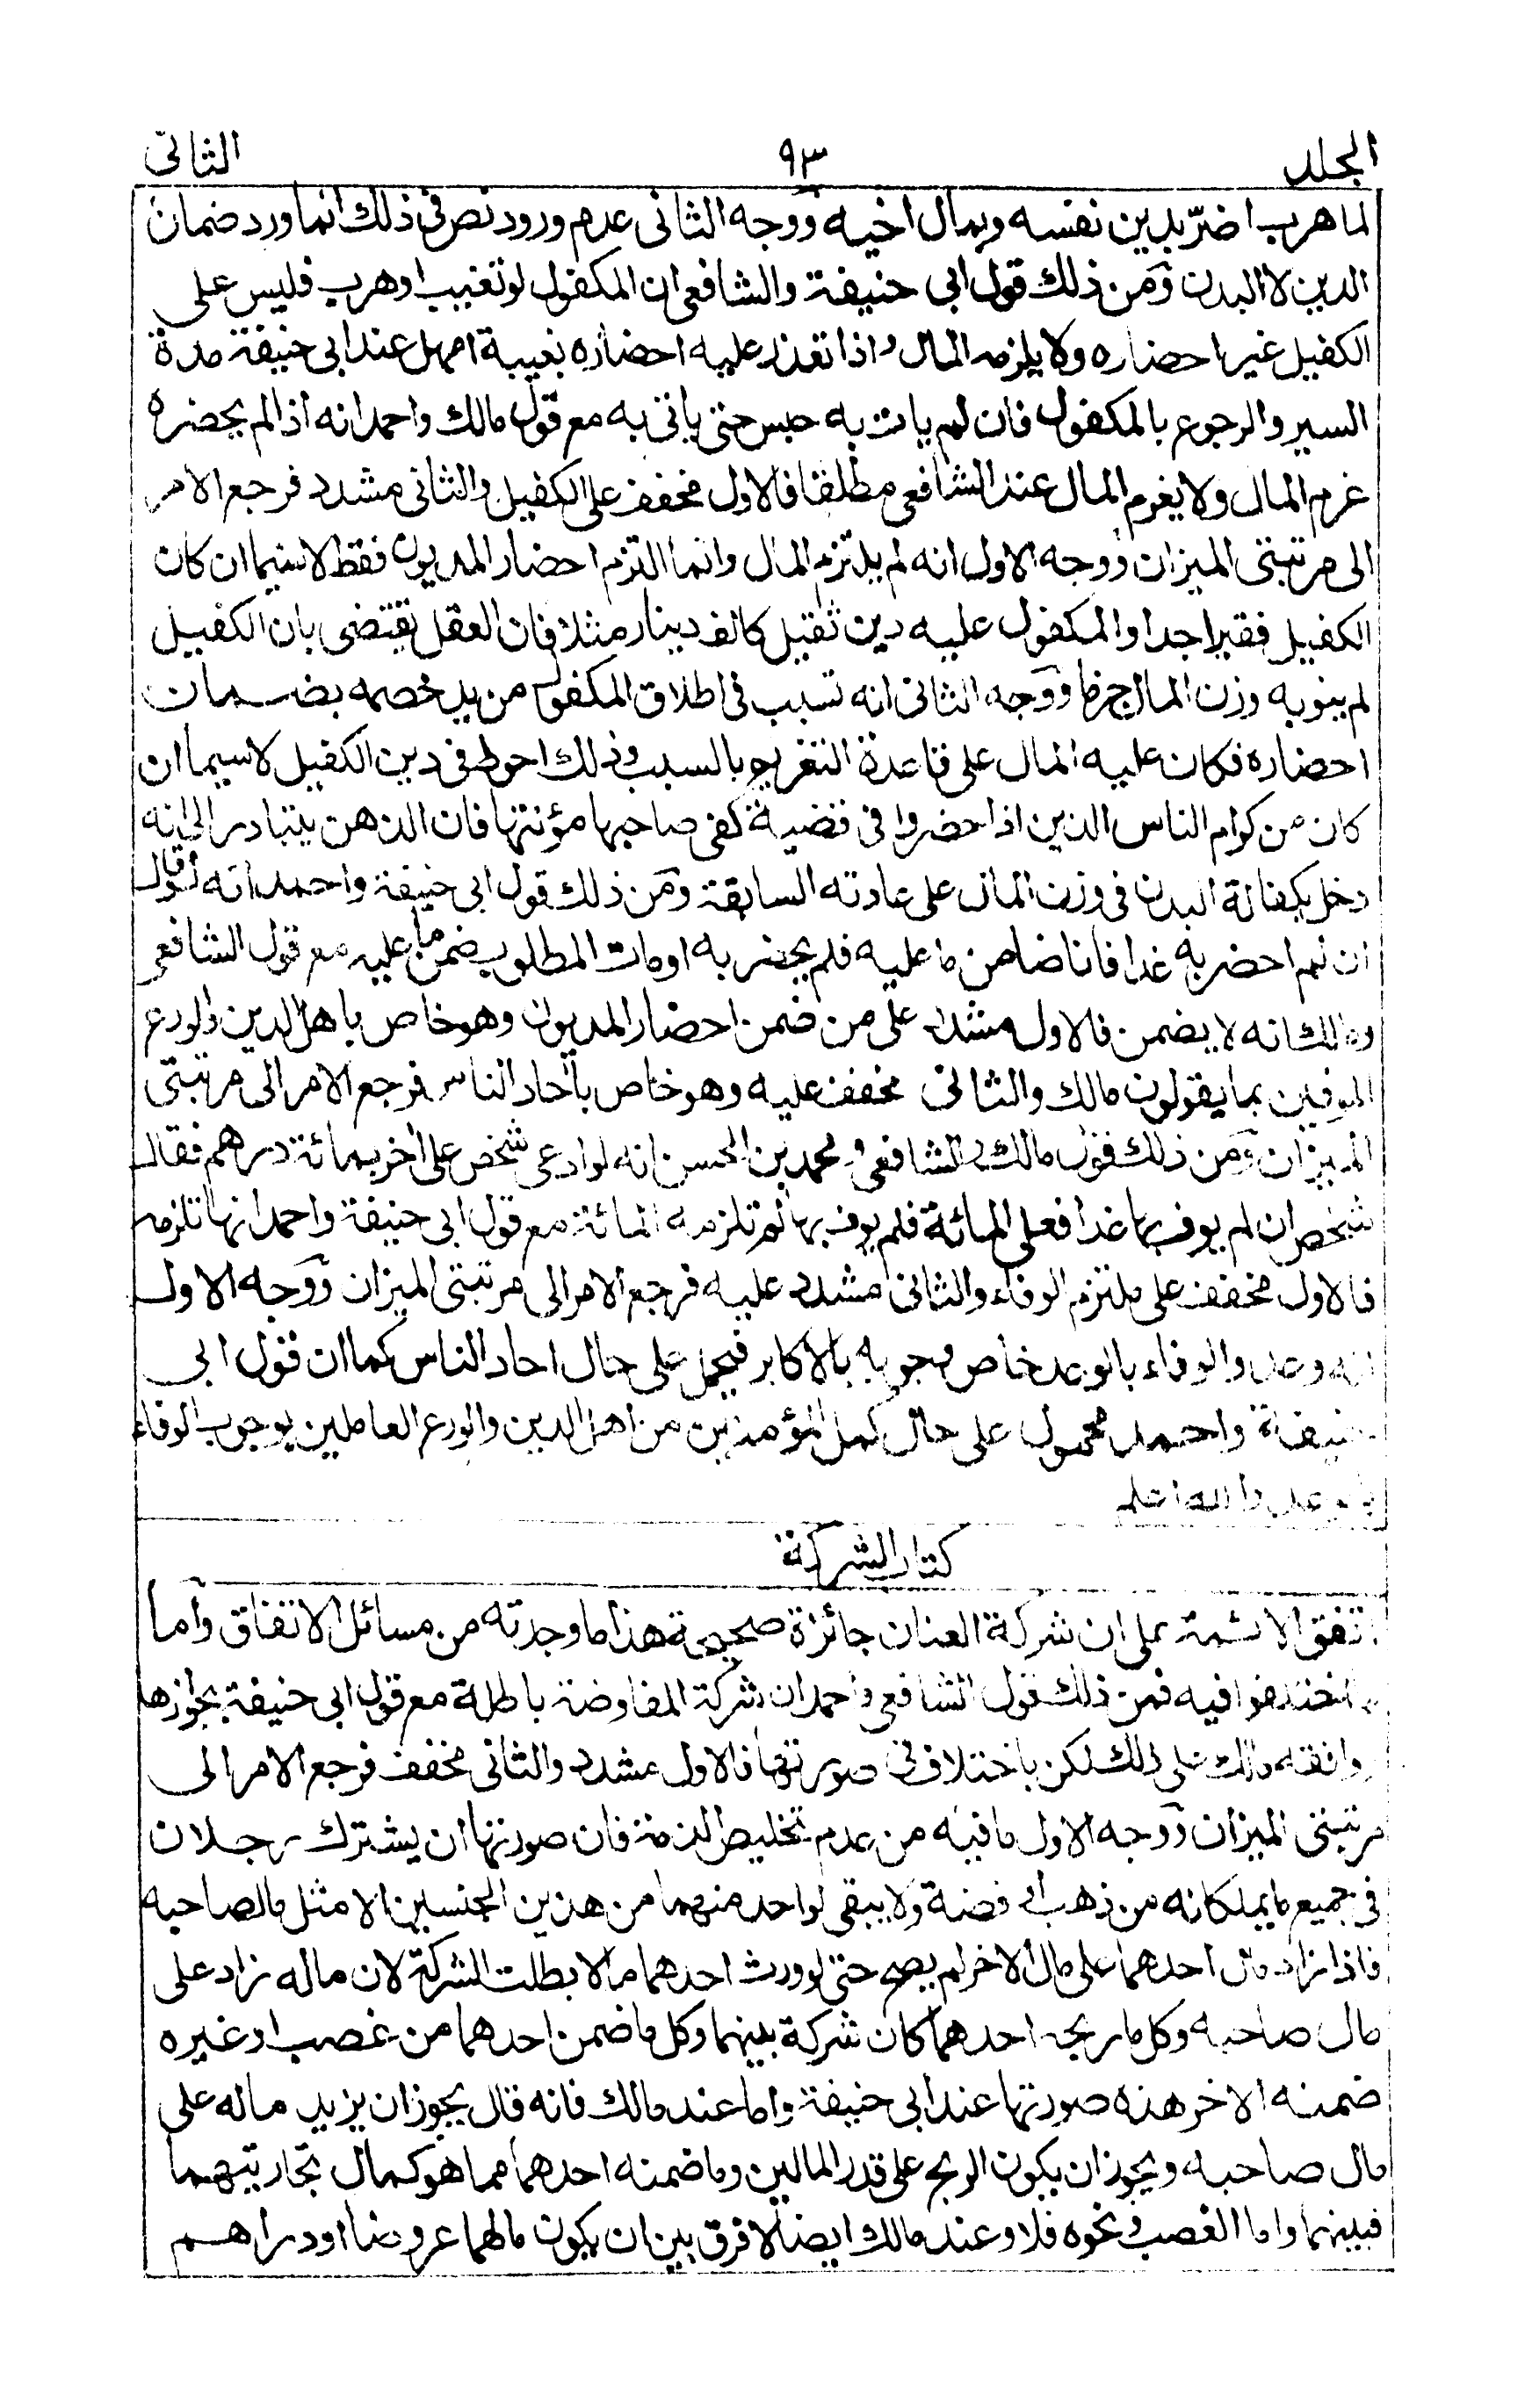 المجلد
٩٣
الثانى
لما هرب اضرّ بدين نفسه وبمال اخيه ووجه الثانى عدم ورود نص فى ذلك انما ورد ضمان
الدين لا البدن ومن ذلك قول ابى حنيفة والشافعى ان المكفول لو تغيب او هرب فليس على
الكفيل غير احضاره ولا يلزمه المال واذا تعذر عليه احضاره بغيبة امهل عند ابى حنيفة مدة
السير والرجوع بالمكفول فان لم يات به حبس حتى ياتى به مع قول مالك واحمد انه اذا لم يحضره
غرم المال ولا يغرم المال عند الشافعى مطلقا فالاول مخفف على الكفيل والثانى مشدد فرجع الامر
الى مرتبتى الميزان ووجه الاول انه لم يلتزم المال وانما التزم احضار المديون فقط لاسيما ان كان
الكفيل فقيرا جدا والمكفول عليه دين ثقيل كالف دينار مثلا فان العقل يقتضى بان الكفيل
لم ينو به وزن المال جزما ووجه الثانى انه تسبب فى اطلاق المكفول من يد خصمه بضمان
احضاره فكان عليه المال على قاعدة التغريم بالسبب وذلك احوط فى دين الكفيل لاسيما ان
كان من كرام الناس الذين اذا حضروا فى قضية كفى صاحبها مؤنتها فان الذهن يتبادر الى انه
دخل بكفالة البدن فى وزن المال على عادته السابقة ومن ذلك قول ابى حنيفة واحمد انه لو قال
ان لم احضر به غدا فانا ضامن ما عليه فلم يحضر به او مات المطلوب ضمن ما عليه مع قول الشافعى
ومالك انه لا يضمن فالاول مشدد على من ضمن احضار المديون وهو خاص باهل الدين والورع
الموفين بما يقولون مالك والثانى مخفف عليه وهو خاص بآحاد الناس فرجع الامر الى مرتبتى
الميزان ومن ذلك قول مالك والشافعى ومحمد بن الحسن انه لو ادعى شخص على اخر بمائة درهم فقال
شخص ان لم يوف بها غدا فعلى المائة فلم يوف بها لم تلزمه المائة مع قول ابى حنيفة واحمد انها تلزمه
فالاول مخفف على ملتزم الوفاء والثانى مشدد عليه فرجع الامر الى مرتبتى الميزان ووجه الاول
انه وعد والوفاء بالوعد خاص وجوبه بالاكابر فيحمل على حال احاد الناس كما ان قول ابى
حنيفة واحمد محمول على حال كمل المؤمنين من اهل الدين والورع العاملين بوجوب الوفاء
بالوعد والله اعلم
كتاب الشركة
اتفق الائمة على ان شركة العنان جائزة صحيحة هذا ما وجدته من مسائل الاتفاق واما
ما اختلفوا فيه فمن ذلك قول الشافعى واحمد ان شركة المفاوضة باطلة مع قول ابى حنيفة بجوازها
ووافقه مالك على ذلك لكن باختلاف فى صورتها فالاول مشدد والثانى مخفف فرجع الامر الى
مرتبتى الميزان ووجه الاول ما فيه من عدم تخليص الذمة فان صورتها ان يشترك رجلان
فى جميع ما يملكانه من ذهب او فضة ولا يبقى لواحد منهما من هذين الجنسين الا مثل ما لصاحبه
فاذا زاد مال احدهما على مال الاخر لم يصح حتى لو ورث احدهما مالا بطلت الشركة لان ماله زاد على
مال صاحبه وكل ما ربحه احدهما كان شركة بينهما وكل ما ضمن احدهما من غصب او غيره
ضمنه الاخر هذه صورتها عند ابى حنيفة واما عند مالك فانه قال يجوز ان يزيد ماله على
مال صاحبه ويجوز ان يكون الربح على قدر المالين وما ضمنه احدهما مما هو كمال تجارتهما
فبينهما واما الغصب ونحوه فلا وعند مالك ايضا لا فرق بين ان يكون مالهما عروضا او دراهم